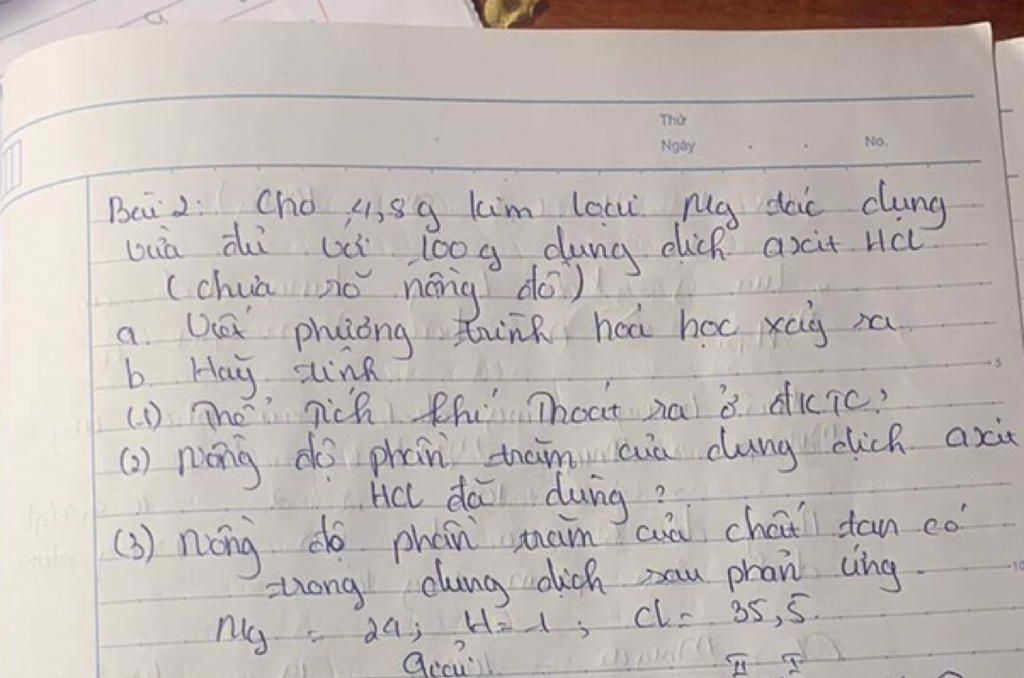 Thứ
Ngày . . No.
Bài 2: Cho 4,8g kim loại Mg tác dụng
vừa đủ với 100g dung dịch axit HCl
(chưa rõ nồng độ)
a. Viết phương trình hoá học xảy ra
b. Hãy tính
(1) Thể Tích khí Thoát ra ở đKTC?
(2) Nồng độ phần trăm của dung dịch axit
HCl đã dùng?
(3) Nồng độ phần trăm của chất tan có
trong dung dịch sau phản ứng.
Mg = 24; H=1; Cl= 35,5.
Giải:
II I